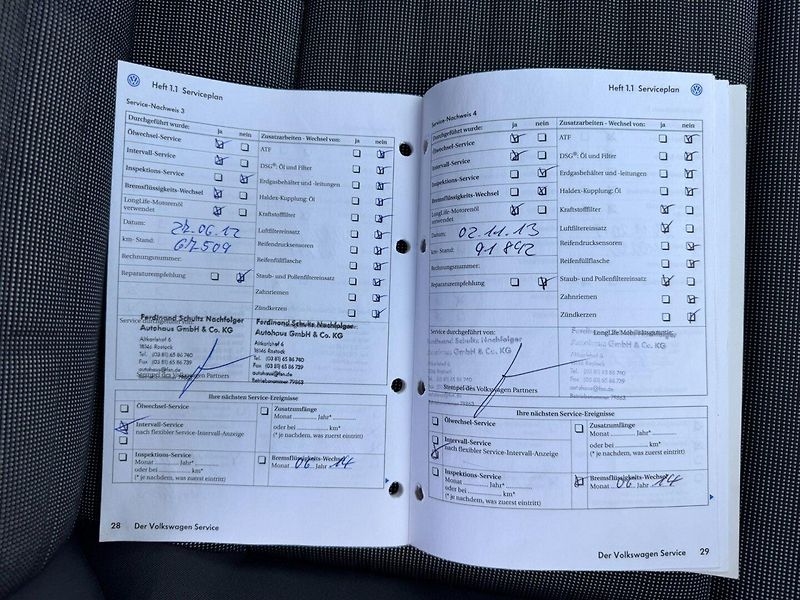 Heft 1.1 Serviceplan
Service-Nachweis 3
Durchgeführt wurde: ja nein
Ölwechsel-Service
Intervall-Service
Inspektions-Service
Bremsflüssigkeits-Wechsel
LongLife-Motorenöl
verwendet
Datum: 27.06.12
km-Stand: 67509
Rechnungsnummer:
Reparaturempfehlung
Zusatzarbeiten - Wechsel von: ja nein
ATF
DSG®: Öl und Filter
Erdgasbehälter und -leitungen
Haldex-Kupplung: Öl
Kraftstofffilter
Luftfiltereinsatz
Reifendrucksensoren
Reifenfüllflasche
Staub- und Pollenfiltereinsatz
Zahnriemen
Zündkerzen
Service durchgeführt von:
Ferdinand Schultz Nachfolger
Autohaus GmbH & Co. KG
Altkarlshof 6
18146 Rostock
Tel. (03 81) 65 86 740
Fax (03 81) 65 86 739
autohaus@fsn.de
Stempel des Volkswagen Partners
Ferdinand Schultz Nachfolger
Autohaus GmbH & Co. KG
Altkarlshof 6
18146 Rostock
Tel. (03 81) 65 86 740
Fax (03 81) 65 86 739
autohaus@fsn.de
Betriebsnummer 79863
Ihre nächsten Service-Ereignisse
Ölwechsel-Service
Intervall-Service
nach flexibler Service-Intervall-Anzeige
Inspektions-Service
Monat Jahr*
oder bei km*
(* je nachdem, was zuerst eintritt)
Zusatzumfänge
Monat Jahr*
oder bei km*
(* je nachdem, was zuerst eintritt)
Bremsflüssigkeits-Wechsel
Monat 06 Jahr 14
28 Der Volkswagen Service
Heft 1.1 Serviceplan
Service-Nachweis 4
Durchgeführt wurde: ja nein
Ölwechsel-Service
Intervall-Service
Inspektions-Service
Bremsflüssigkeits-Wechsel
LongLife-Motorenöl
verwendet
Datum: 02.11.13
km-Stand: 91892
Rechnungsnummer:
Reparaturempfehlung
Zusatzarbeiten - Wechsel von: ja nein
ATF
DSG®: Öl und Filter
Erdgasbehälter und -leitungen
Haldex-Kupplung: Öl
Kraftstofffilter
Luftfiltereinsatz
Reifendrucksensoren
Reifenfüllflasche
Staub- und Pollenfiltereinsatz
Zahnriemen
Zündkerzen
Service durchgeführt von:
Ferdinand Schultz Nachfolger
Autohaus GmbH & Co. KG
Stempel des Volkswagen Partners
LongLife Mobilitätsgarantie
Autohaus GmbH & Co. KG
Altkarlshof 6
18146 Rostock
Betriebsnummer 79863
Ihre nächsten Service-Ereignisse
Ölwechsel-Service
Intervall-Service
nach flexibler Service-Intervall-Anzeige
Inspektions-Service
Monat Jahr*
oder bei km*
(* je nachdem, was zuerst eintritt)
Zusatzumfänge
Monat Jahr*
oder bei km*
(* je nachdem, was zuerst eintritt)
Bremsflüssigkeits-Wechsel
Monat 06 Jahr 14
Der Volkswagen Service 29